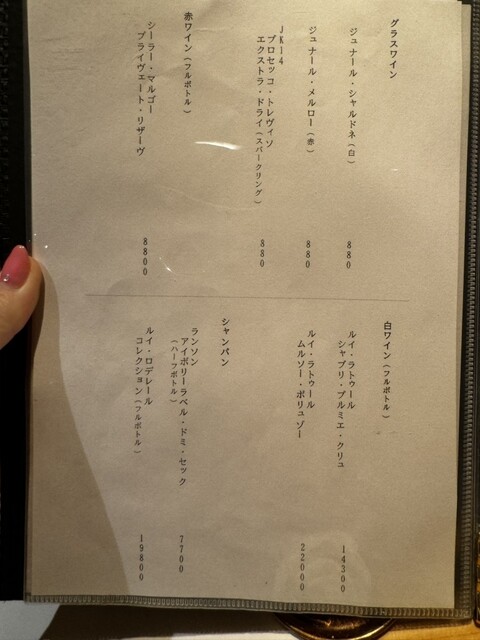 グラスワイン
ジュナール・シャルドネ（白）　880
ジュナール・メルロー（赤）　880
JK14
プロセッコ・トレヴィソ
エクストラ・ドライ（スパークリング）　880
赤ワイン（フルボトル）
シーラー・マルゴー
プライヴェート・リザーヴ　8800
白ワイン（フルボトル）
ルイ・ラトゥール
シャブリ・プルミエ・クリュ　14300
ルイ・ラトゥール
ムルソー・ポリュゾー　22000
シャンパン
ランソン
アイボリーラベル・ドミ・セック
（ハーフボトル）　7700
ルイ・ロデレール
コレクション（フルボトル）　19800